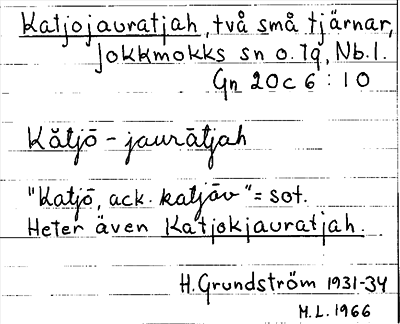 Katjojauratjah, två små tjärnar,
Jokkmokks sn o. lq, Nb.l.
Gn 20C 6:10
Kåtjō - jaurātjah
"Katjō, ack. katjōv" = sot.
Heter även Katjokjauratjah.
H. Grundström 1931-34
M.L. 1966